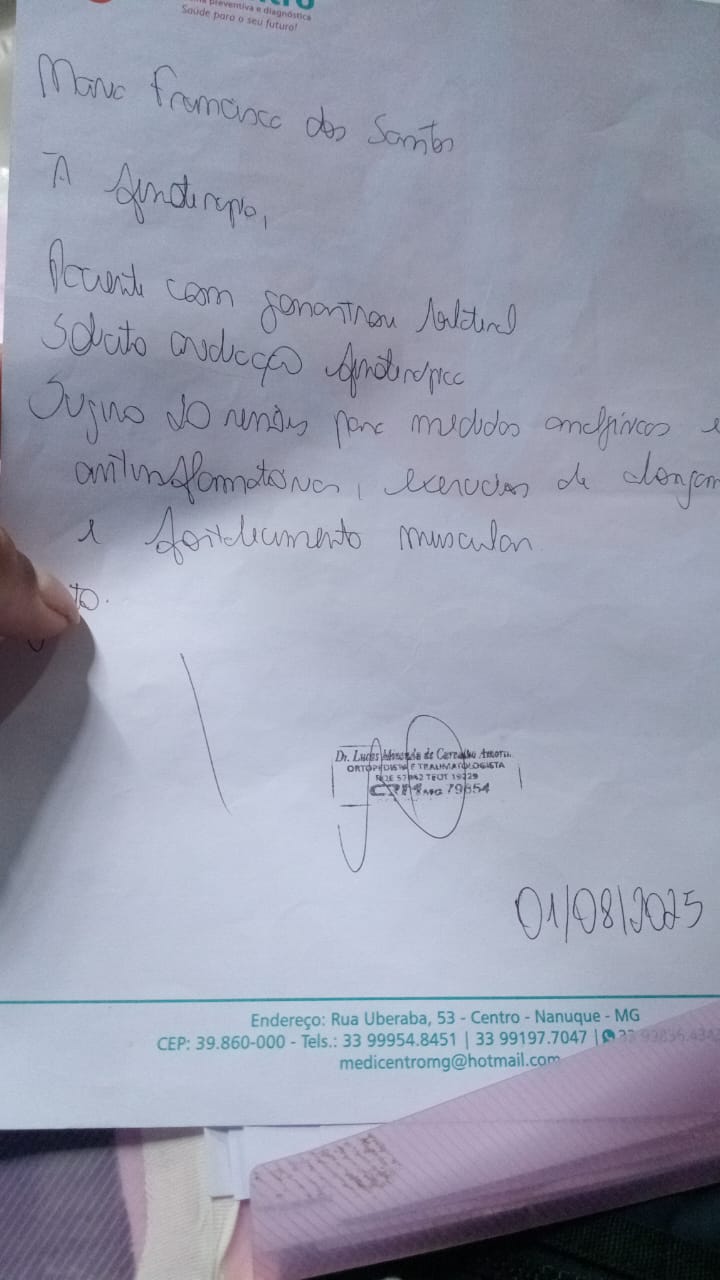 preventiva e diagnóstica
Saúde para o seu futuro!
Maria Francisca dos Santos
À fisioterapia,
Paciente com gonartrose bilateral
Solicito avaliação fisioterápica
Sugiro 20 sessões para medidas analgésicas e
antiinflamatórias, exercícios de alongam
e fortalecimento muscular.
to.
Dr. Lucas Miranda de Carvalho Amorim
ORTOPEDISTA E TRAUMATOLOGISTA
RQE TEOT 19229
CRM MG 79854
01/08/2025
Endereço: Rua Uberaba, 53 - Centro - Nanuque - MG
CEP: 39.860-000 - Tels.: 33 99954.8451 | 33 99197.7047 |
medicentromg@hotmail.com